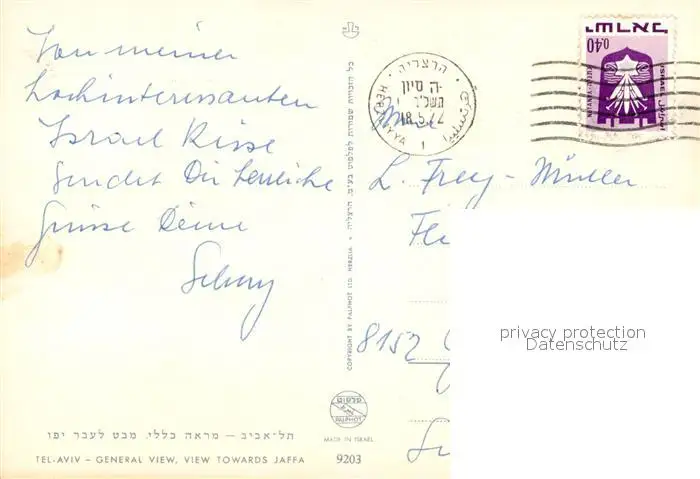 Von meiner
hochinteressanten
Israel Reise
sendet Dir herzliche
Grüsse Deine
תל־אביב – מראה כללי, מבט לעבר יפו
TEL-AVIV – GENERAL VIEW, VIEW TOWARDS JAFFA
כל הזכויות שמורות לפלפוט בע"מ, הרצליה
COPYRIGHT BY PALPHOT LTD. HERZLIA
PALPHOT
MADE IN ISRAEL
9203
הרצליה
ה' סיון
תשל"ב
18.5.72
HERZLIYYA
1
ישראל
0,40
ISRAEL
L. Frey-Müller
8152
privacy protection
Datenschutz